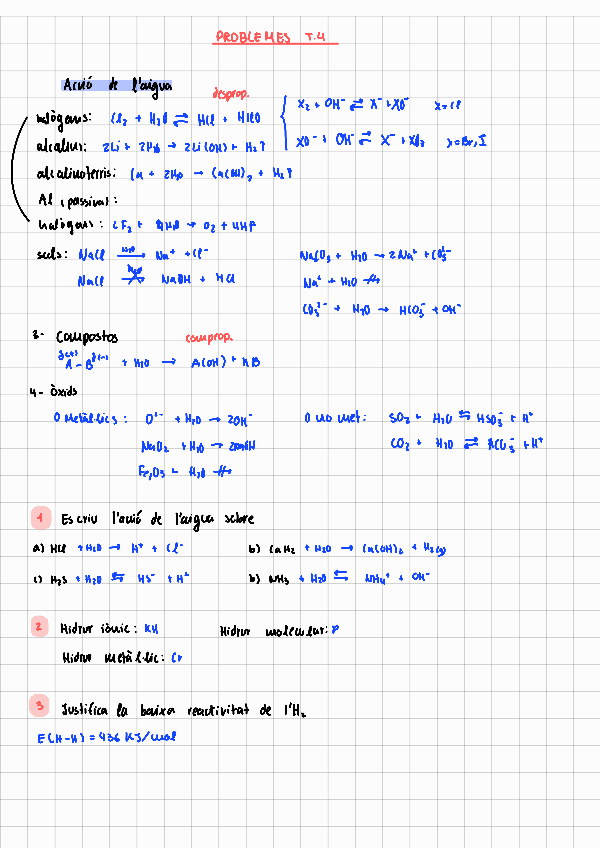 PROBLEMES T.4
Acció de l'aigua
desprop.
halògens: Cl₂ + H₂O ⇌ HCl + HClO
X₂ + OH⁻ ⇌ X⁻ + XO⁻ X=Cl
XO⁻ + OH⁻ ⇌ X⁻ + XO₃ X=Br, I
alcalins: 2Li + 2H₂O → 2Li(OH) + H₂↑
alcalinoterris: Ca + 2H₂O → Ca(OH)₂ + H₂↑
Al (passiva):
halògens: 2F₂ + H₂O → O₂ + 4HF
sals: NaCl →(H₂O) Na⁺ + Cl⁻
NaCO₃ + H₂O → 2Na⁺ + CO₃²⁻
NaCl ↛(H₂O) NaOH + HCl
Na⁺ + H₂O ↛
CO₃²⁻ + H₂O → HCO₃⁻ + OH⁻
3- Compostos comprop.
A - B + H₂O → A(OH) + HB
4- Òxids
O Metàl·lics: O²⁻ + H₂O → 2OH⁻
O no met: SO₂ + H₂O ⇆ HSO₃⁻ + H⁺
NaO₂ + H₂O → 2NaOH
CO₂ + H₂O ⇌ HCO₃⁻ + H⁺
Fe₂O₃ + H₂O ↛
1 Escriu l'acció de l'aigua sobre
a) HCl + H₂O → H⁺ + Cl⁻ b) CaH₂ + H₂O → Ca(OH)₂ + H₂(g)
c) H₂S + H₂O ⇆ HS⁻ + H⁺ b) NH₃ + H₂O ⇆ NH₄⁺ + OH⁻
2 Hidrur iònic: KH Hidrur molecular: P
Hidrur metàl·lic: Cr
3 Justifica la baixa reactivitat de l'H₂
E(H-H) = 436 KJ/mol